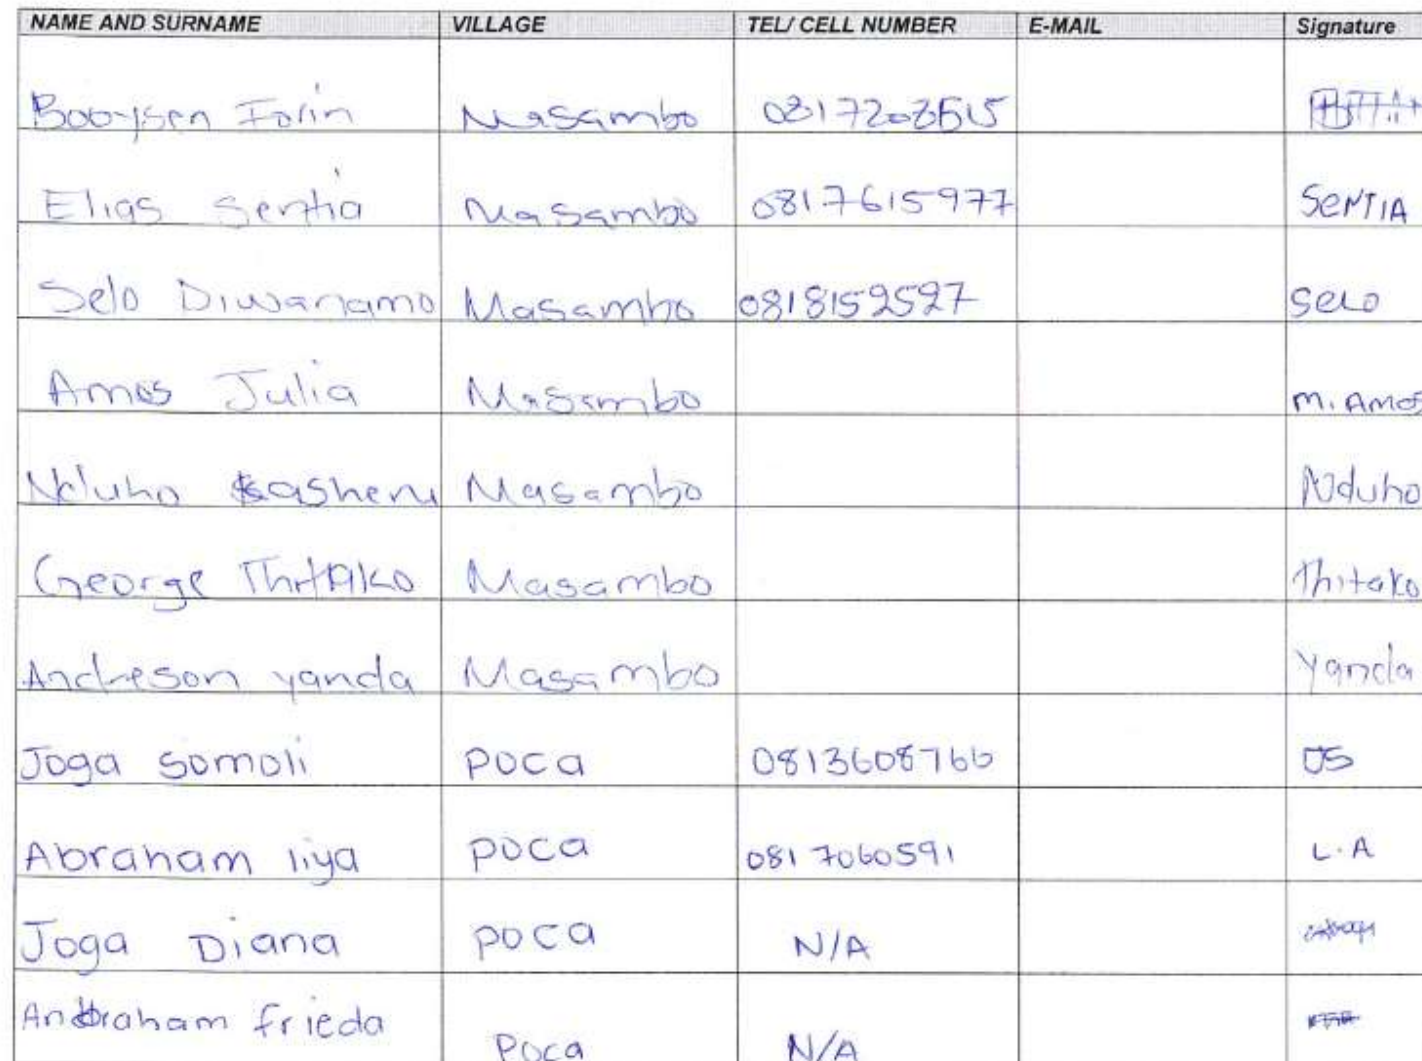 NAME AND SURNAME VILLAGE TEL/ CELL NUMBER E-MAIL Signature
Booysen Forin Masambo
Elias Sentia Masambo 0817615977 SENTIA
Selo Diwanamo Masambo 0818159527 Selo
Amos Julia Masambo M. AMOS
Nduho Kasheru Masambo Nduho
George Thitako Masambo Thitako
Andreson yanda Masambo Yanda
Joga Somoli poca 0813608766 JS
Abraham liya poca 0817060591 L.A
Joga Diana poca N/A
Andraham frieda Poca N/A